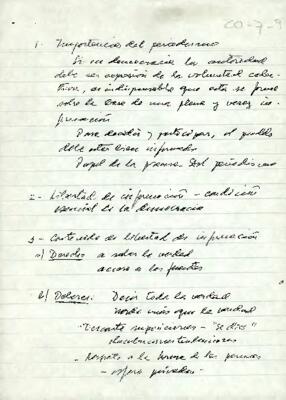 CO-7-9
1. Importancia del periodismo
Si en democracia la autoridad
debe ser expresión de la voluntad colec-
tiva, es indispensable que esta se forme
sobre la base de una plena y veraz in-
formación
Para decidir y participar, el pueblo
debe estar bien informado
Papel de la prensa. Del periodismo
2- Libertad de información - condición
esencial de la democracia
3- Contenido de libertad de información
a) Derecho a saber la verdad
acceso a las fuentes
b) Deberes: Decir toda la verdad
nada más que la verdad
"se dice"
- Respeto a la honra de las personas
- esfera privada -